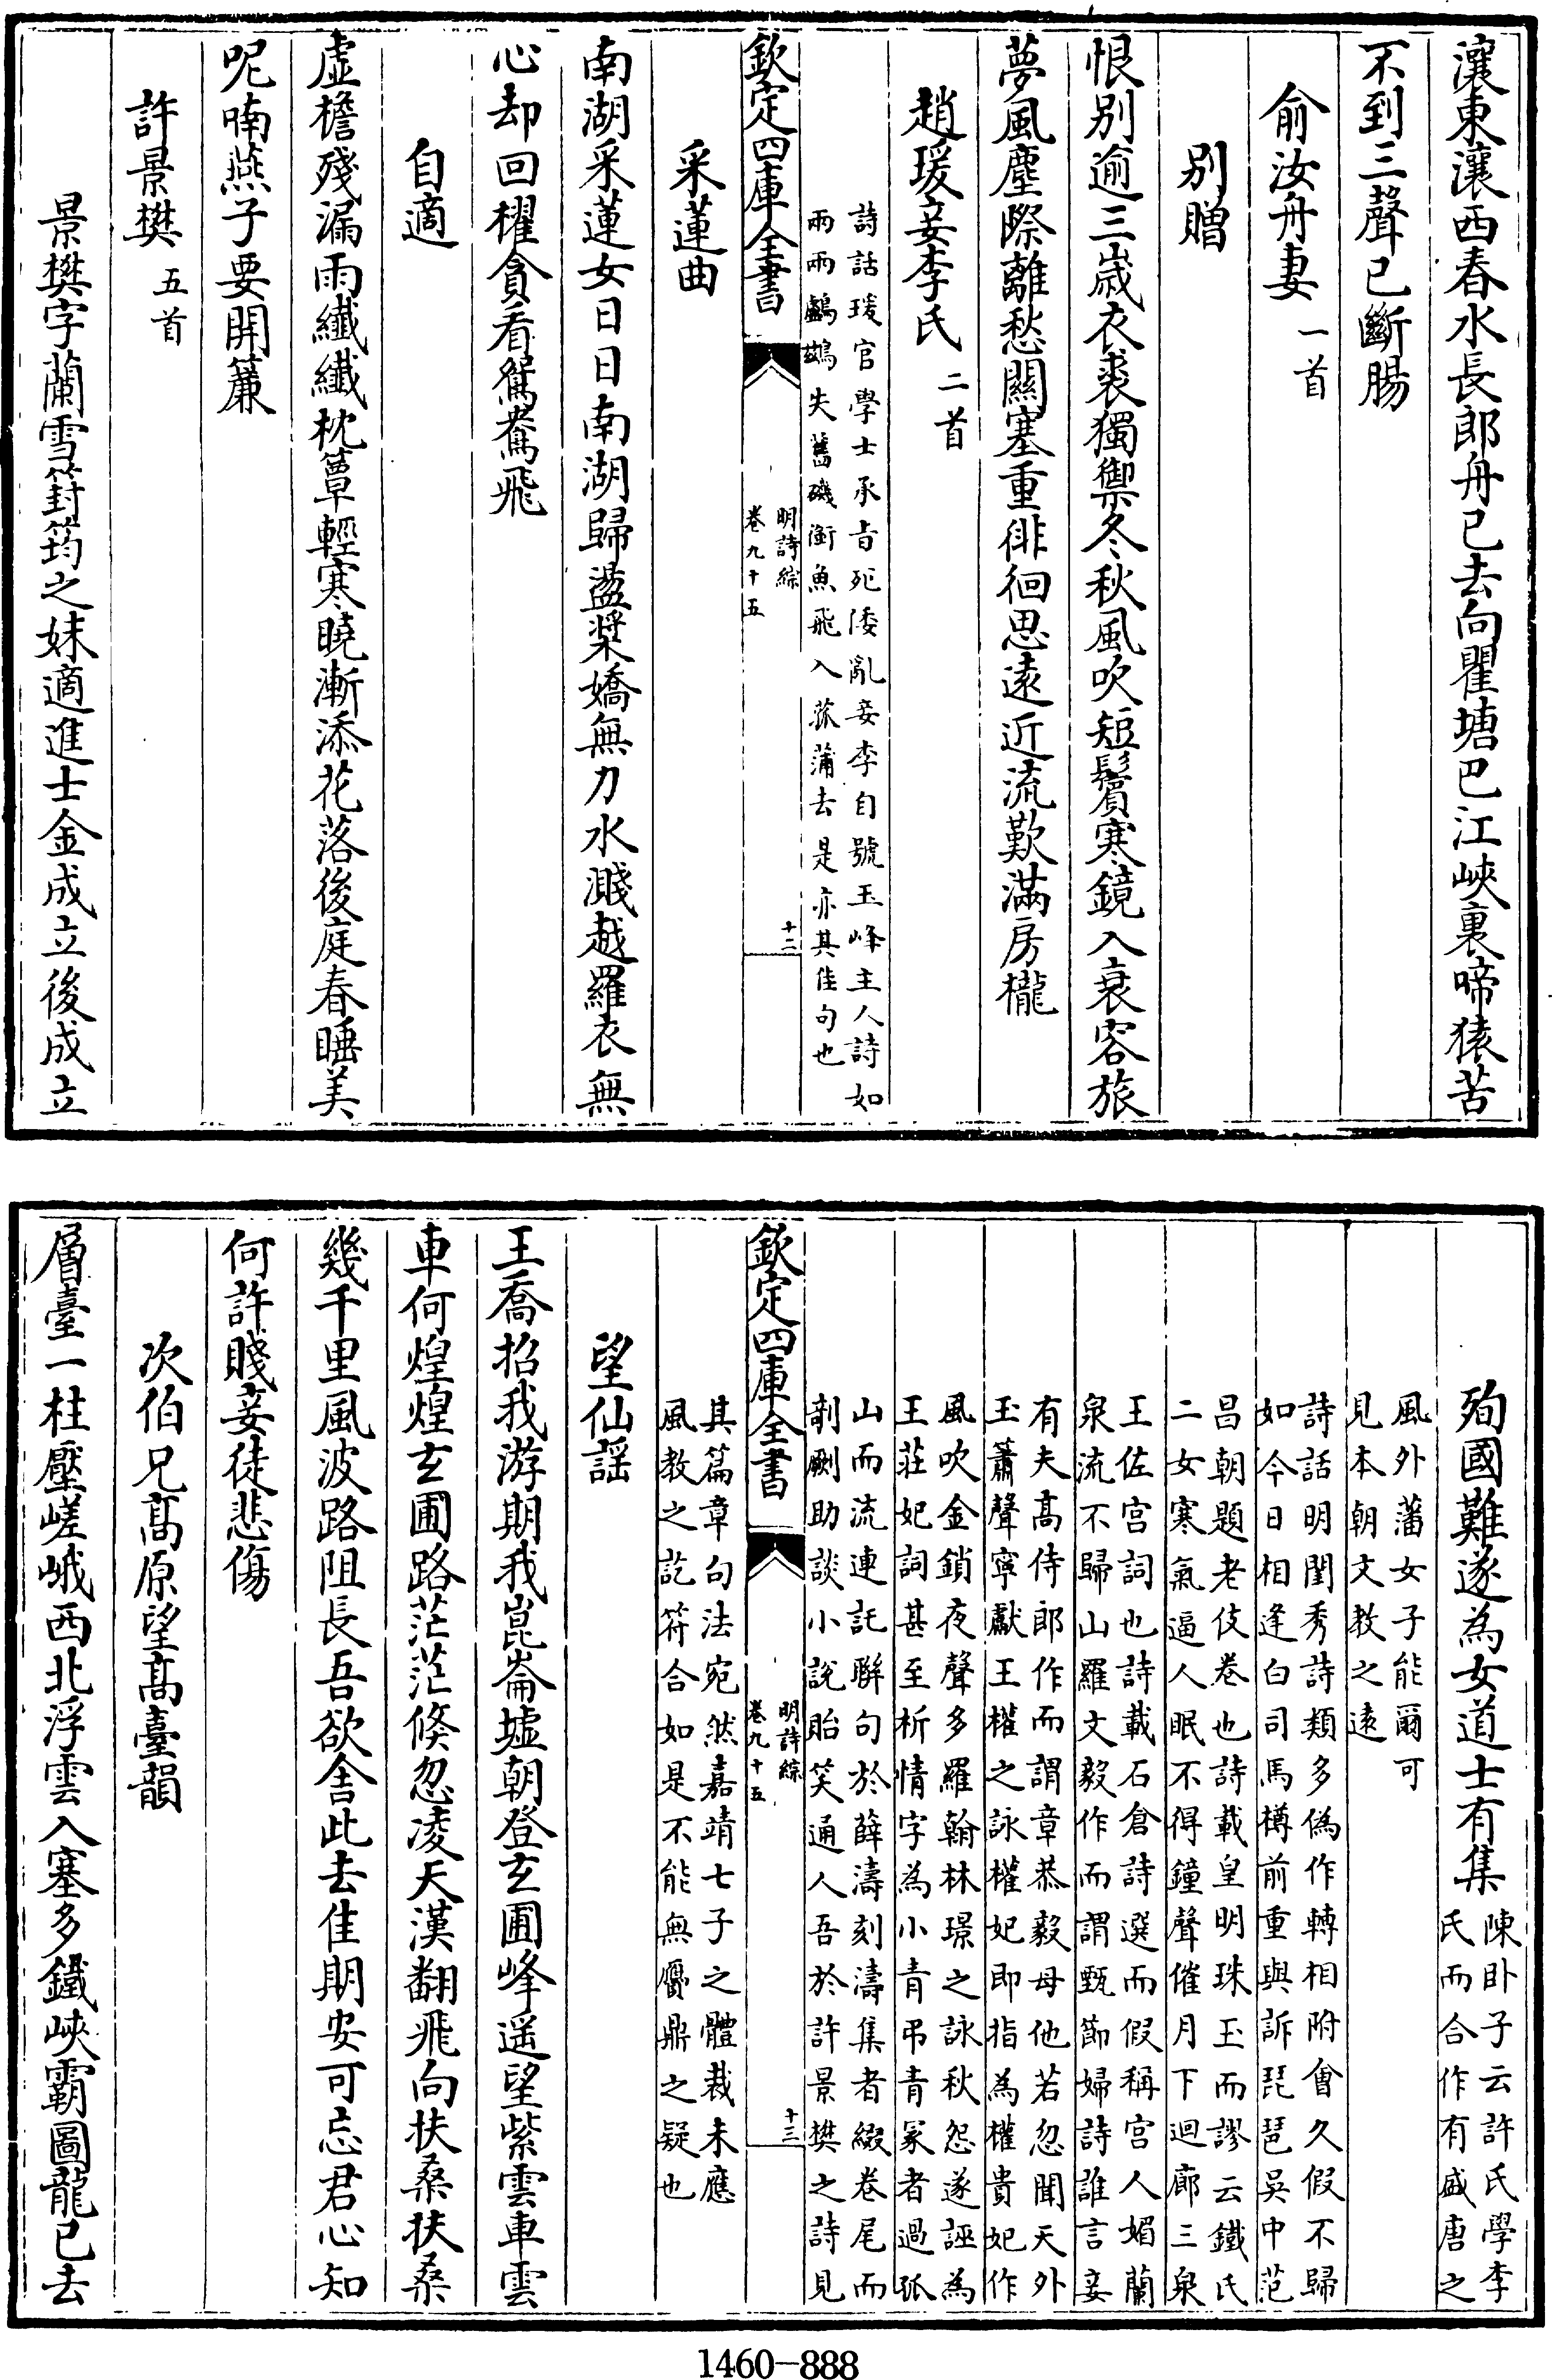 瀼東瀼西春水長郎舟已去向瞿塘巴江峽裏啼猿苦
不到三聲已斷腸
俞汝舟妻一首
别贈
恨别逾三歲衣裘獨禦冬秋風吹短鬢寒鏡入衰容旅
夢風塵際離愁關塞重徘徊思遠近流歎滿房櫳
趙瑗妾李氏二首
詩話瑗官學士承旨死倭亂妾李自號玉峰主人詩如
兩兩鸕鷀失舊磯銜魚飛入菰蒲去是亦其佳句也
欽定四庫全書
明詩綜
卷九十五
十二
采蓮曲
南湖采蓮女日日南湖歸盪槳嬌無力水濺越羅衣無
心却回櫂貪看鴛鴦飛
自適
虛檐殘漏雨纖纖枕簟輕寒曉漸添花落後庭春睡美
呢喃燕子要開簾
許景樊五首
景樊字蘭雪篈筠之妹適進士金成立後成立
殉國難遂為女道士有集
陳卧子云許氏學李
氏而合作有盛唐之
風外藩女子能爾可
見本朝文教之遠
詩話明閨秀詩類多偽作轉相附會久假不歸
如今日相逢白司馬樽前重與訴琵琶吳中范
昌朝題老伎卷也詩載皇明珠玉而謬云鐵氏
二女寒氣逼人眠不得鐘聲催月下迴廊三泉
王佐宫詞也詩載石倉詩選而假稱宫人媚蘭
泉流不歸山羅文毅作而謂甄節婦詩誰言妾
有夫高侍郎作而謂章恭毅母他若忽聞天外
玉簫聲寧獻王權之詠權妃即指為權貴妃作
風吹金鎖夜聲多羅翰林璟之詠秋怨遂誣為
王莊妃詞甚至析情字為小青弔青冢者過孤
山而流連託聨句於薛濤刻濤集者綴卷尾而
剞劂助談小說貽笑通人吾於許景樊之詩見
欽定四庫全書
明詩綜
卷九十五
十三
其篇章句法宛然嘉靖七子之體裁未應
風教之訖符合如是不能無贋鼎之疑也
望仙謡
王喬招我游期我崑崙墟朝登玄圃峰遥望紫雲車雲
車何煌煌玄圃路茫茫倏忽凌天漢翻飛向扶桑扶桑
幾千里風波路阻長吾欲舍此去佳期安可忘君心知
何許賤妾徒悲傷
次伯兄高原望高臺韻
層臺一柱壓嵯峨西北浮雲入塞多鐵峽霸圖龍已去
1460-888